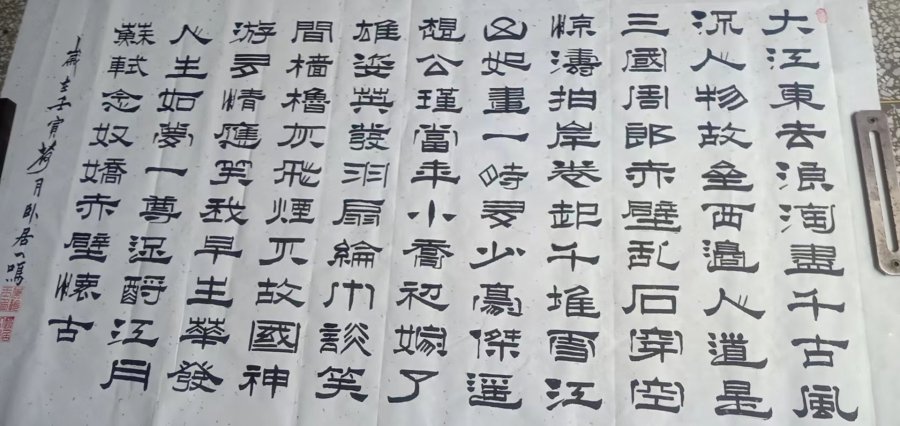 大江東去浪淘盡千古風
流人物故垒西邊人道是
三國周郎赤壁乱石穿空
惊濤拍岸卷起千堆雪江
山如畫一時多少豪傑遥
想公瑾當年小喬初嫁了
雄姿英發羽扇綸巾談笑
間檣櫓灰飛煙灭故國神
游多情應笑我早生華發
人生如夢一尊還酹江月
蘇軾念奴嬌赤壁懷古
歲在壬寅荷月卧居一鳴